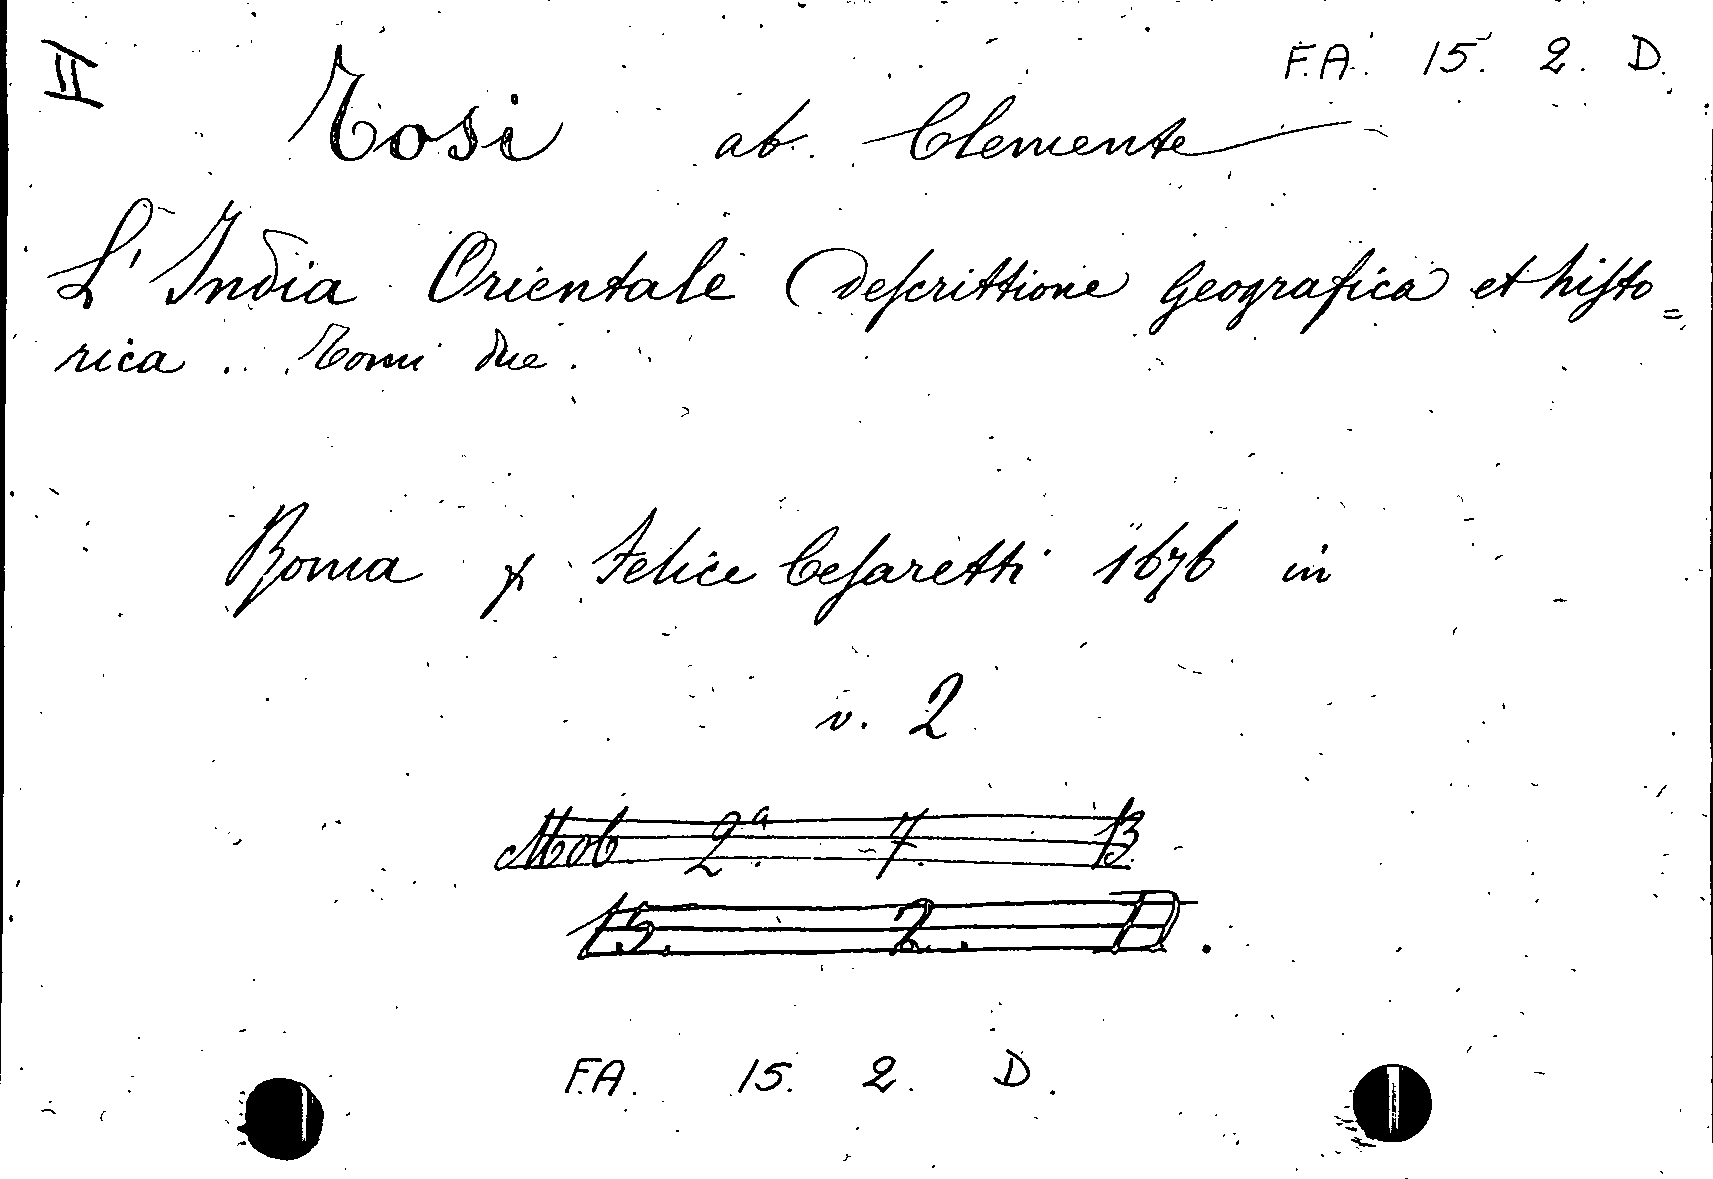 II
F.A. 15. 2. D.
Tosi ab. Clemente
L' India Orientale Deſcrittione Geografica et hiſto=
rica .. Tomi due.
Roma p Felice Ceſaretti 1676 in
v. 2
Mob 2.ª 7. B.
15. 2. D.
F.A. 15. 2. D.